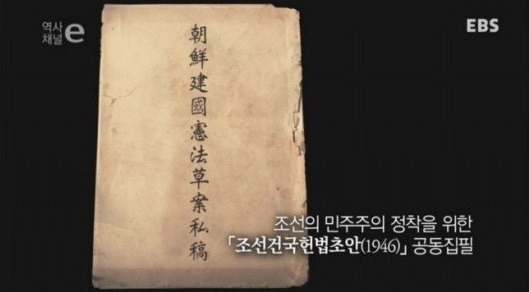 역사
채널e
EBS
朝鮮建國憲法草案私稿
조선의 민주주의 정착을 위한
「조선건국헌법초안(1946)」 공동집필